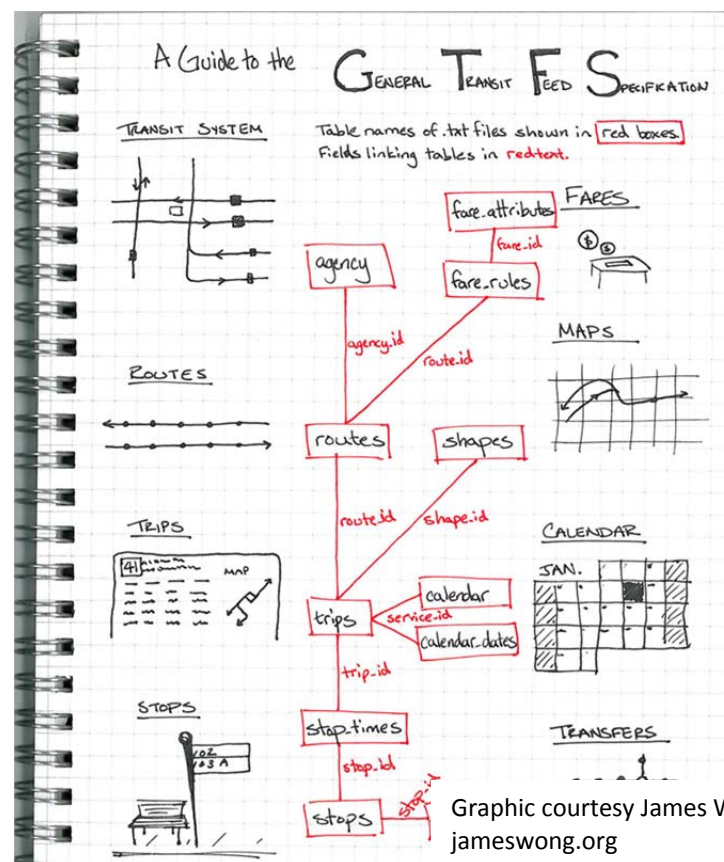 A Guide to the GENERAL TRANSIT FEED SPECIFICATION
TRANSIT SYSTEM
Table names of .txt files shown in red boxes.
Fields linking tables in red text.
fare_attributes
FARES
fare_id
agency
fare_rules
$
$
MAPS
agency_id
route_id
ROUTES
routes
shapes
route_id
shape_id
TRIPS
CALENDAR
41
MAP
JAN.
calendar
trips
service_id
calendar_dates
trip_id
STOPS
stop_times
TRANSFERS
102
103 A
stop_id
stop_id
stops
Graphic courtesy James W
jameswong.org